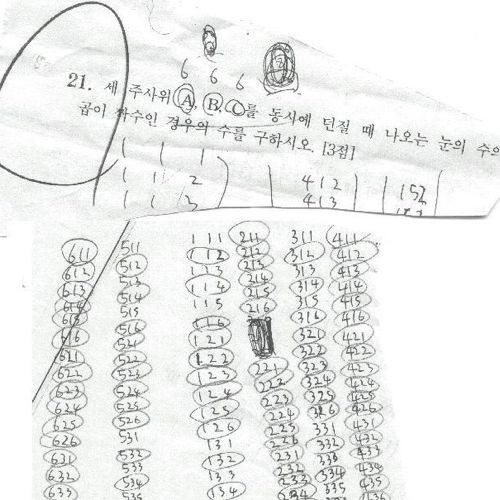 6 6 6
21. 세 주사위 A, B, C를 동시에 던질 때 나오는 눈의 수의
곱이 짝수인 경우의 수를 구하시오. [3점]
1 1 1
1 1 2 412 152
1 1 3 413
611 511 111 211 311 411
612 512 112 212 312 412
613 513 113 213 313 413
614 514 114 214 314 414
615 515 115 215 315 415
616 516 116 216 316 416
621 521 121 321 421
622 522 122 221 322 422
623 523 123 222 323 423
624 524 124 223 324 424
625 525 125 224 325 425
626 526 126 225 326 426
631 531 131 226 331 431
632 532 132 231 332 432
633 533 133 232 333 433
534 134 233 334 434
535 135 234 335 435
436